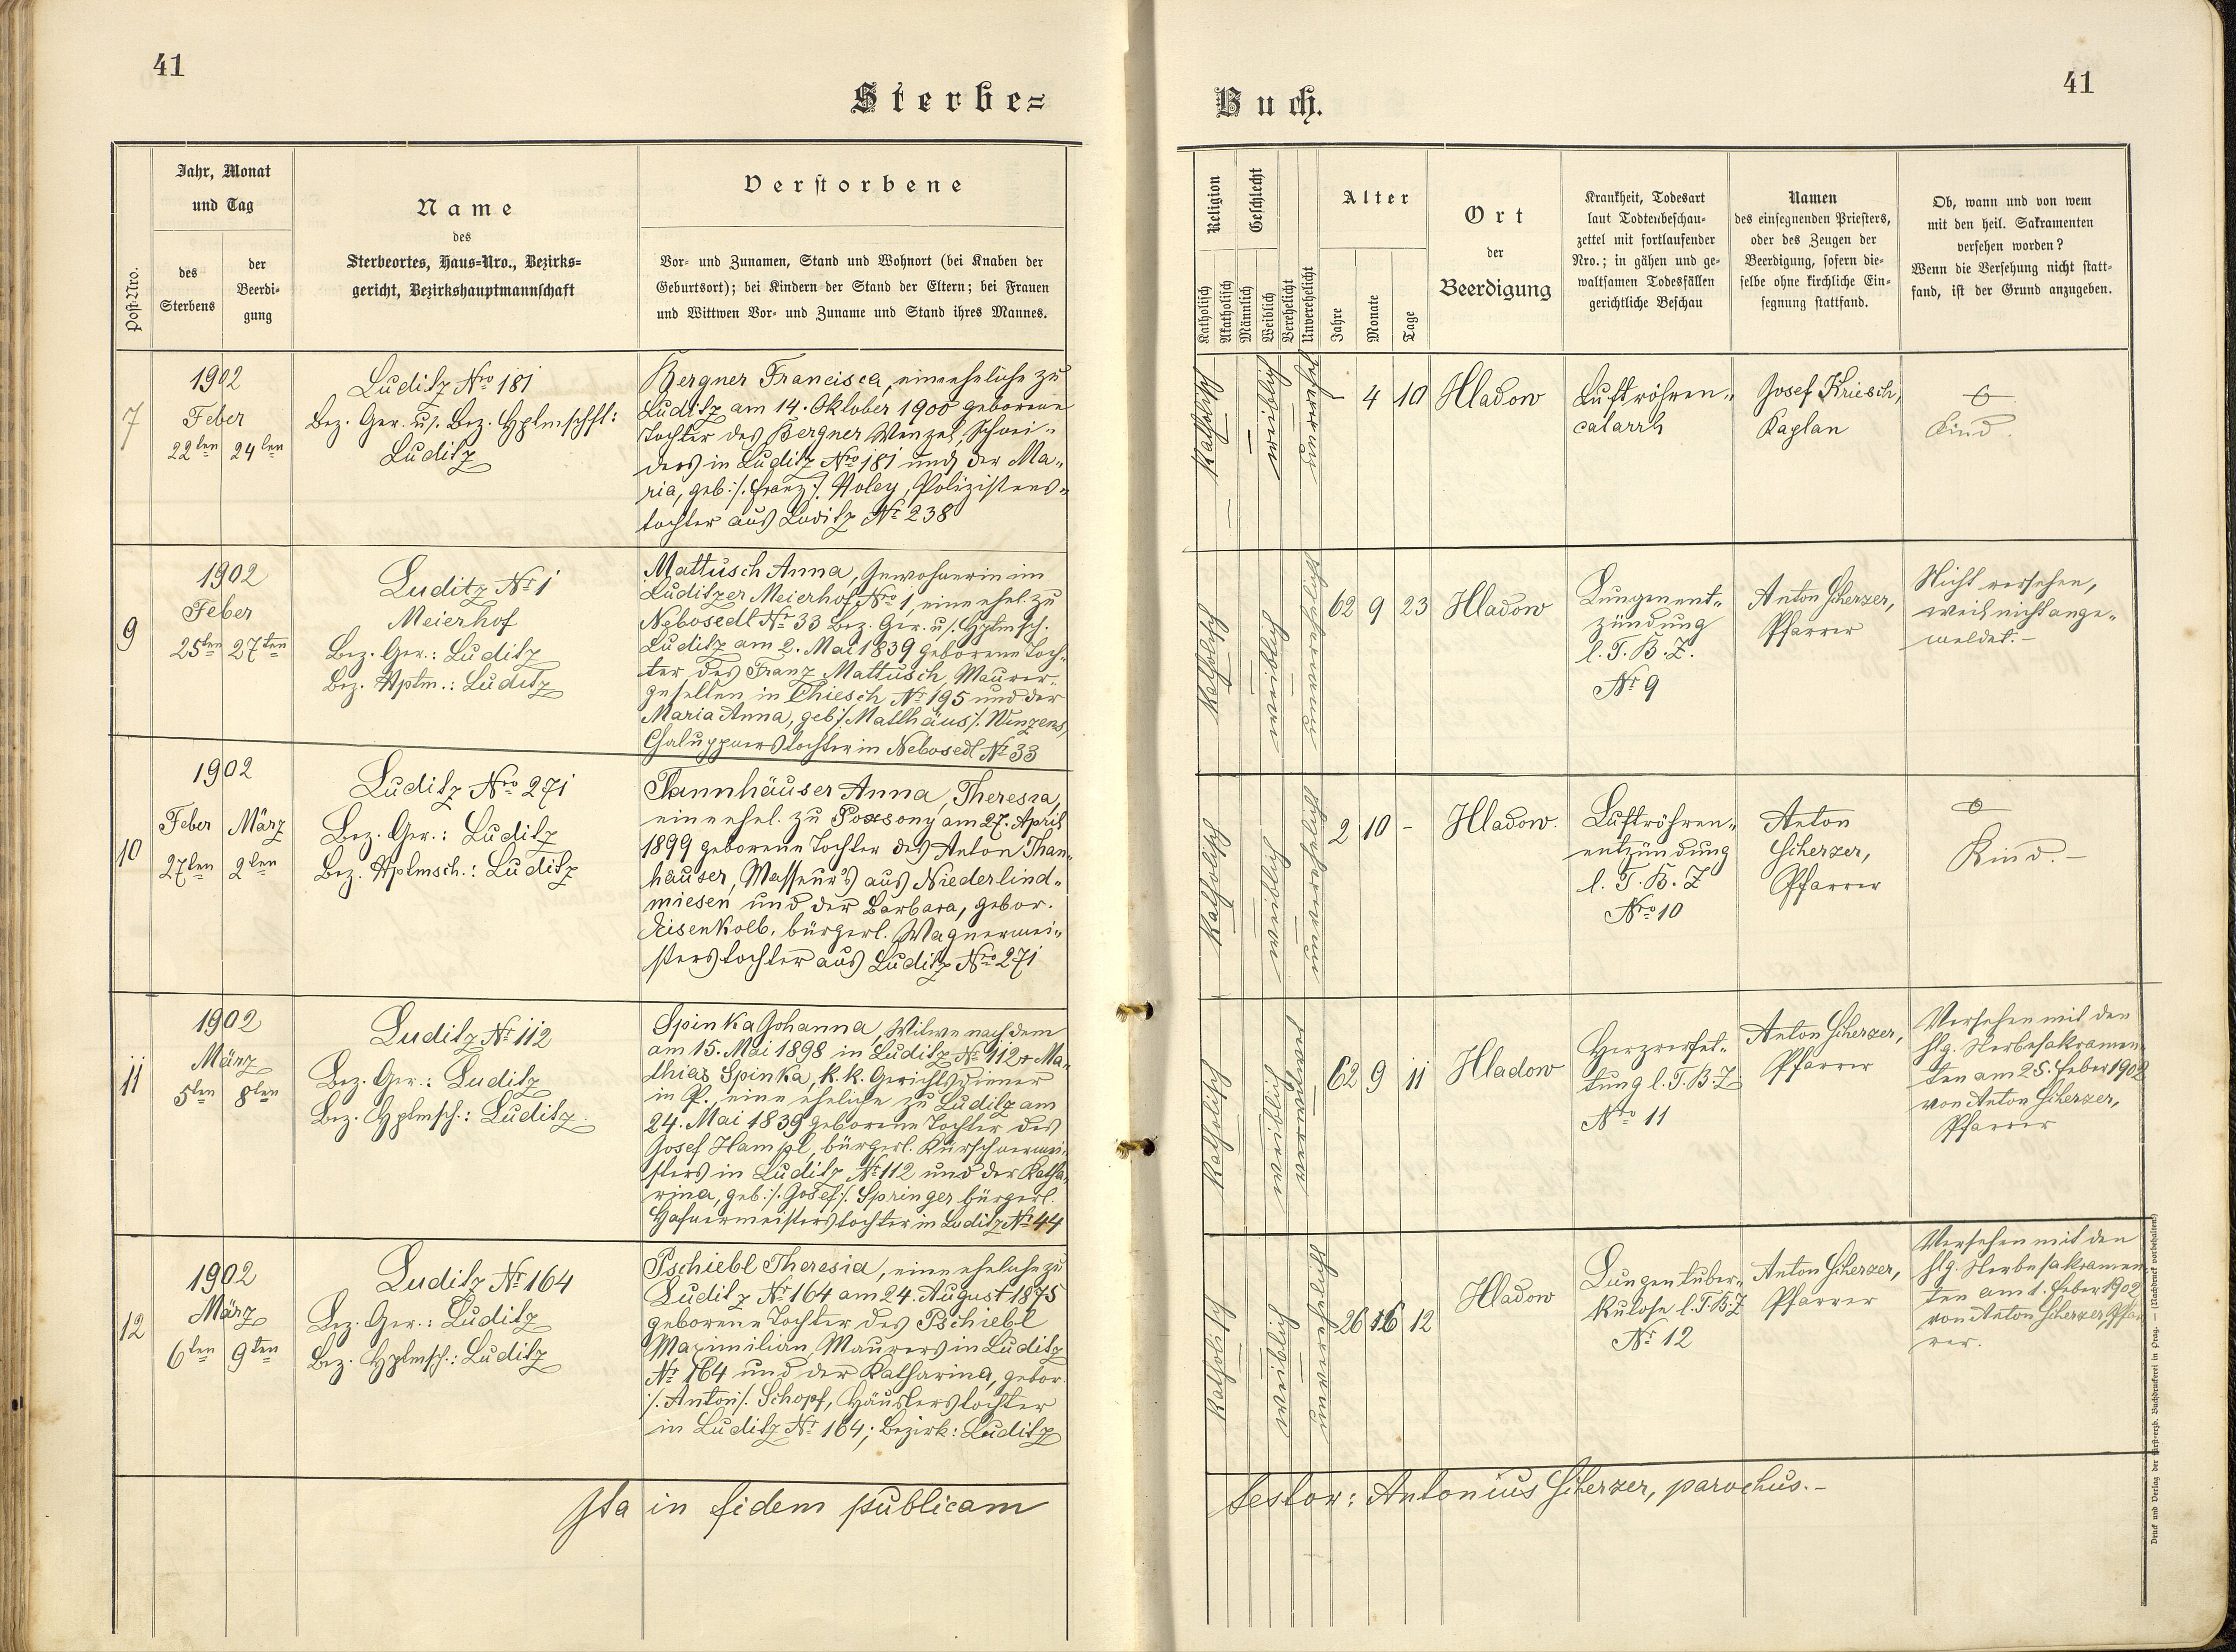 41
41
Sterbe=
Buch.
Post-Nro.
Jahr, Monat
und Tag
des
Sterbens
der
Beerdi-
gung
Name
des
Sterbeortes, Haus=Nro., Bezirks=
gericht, Bezirkshauptmannschaft
Verstorbene
Vor- und Zunamen, Stand und Wohnort (bei Knaben der
Geburtsort); bei Kindern der Stand der Eltern; bei Frauen
und Wittwen Vor- und Zuname und Stand ihres Mannes.
Religion
Katholisch
Akatholisch
Geschlecht
Männlich
Weiblich
Verehelicht
Unverehelicht
Alter
Jahre
Monate
Tage
Ort
der
Beerdigung
Krankheit, Todesart
laut Todtenbeschau-
zettel mit fortlaufender
Nro.; in gähen und ge-
waltsamen Todesfällen
gerichtliche Beschau
Namen
des einsegnenden Priesters,
oder des Zeugen der
Beerdigung, sofern die-
selbe ohne kirchliche Ein-
segnung stattfand.
Ob, wann und von wem
mit den heil. Sakramenten
versehen worden?
Wenn die Versehung nicht statt-
fand, ist der Grund anzugeben.
7
1902
Feber
22ten 24ten
Luditz Nro 181
Bez. Ger. u/. Bez. Hptmschft:
Luditz
Bergner Francisca, eine eheliche zu
Luditz am 14. Oktober 1900 geborene
Tochter des Bergner Wenzel, Schnei-
ders in Luditz Nro 181 und der Ma-
ria, geb: /. Franz /. Holey, Polizistens-
tochter aus Luditz Nr 238
Katholisch
weiblich
unverehel
1 4 10
Hladow
Luftröhren-
catarrh
Josef Kriesch,
Kaplan
Kind.
9
1902
Feber
25ten 27ten
Luditz Nr 1
Meierhof
Bez. Ger.: Luditz
Bez. Hptm.: Luditz
Mattusch Anna, Inwohnerin im
Luditzer Meierhof Nro 1, eine ehel. zu
Nebosedl Nr 33 Bez. Ger. u/. Hptmsch.
Luditz am 2. Mai 1839 geborene Toch-
ter des Franz Mattusch, Maurer-
gesellen in Chiesch Nr 195 und der
Maria Anna, geb /. Matthäus /. Winzens,
Chaluppnerstochter in Nebosedl Nr 33
Katholisch
weiblich
unverehelicht
62 9 23
Hladow
Lungenent-
zündung
l. T. B. Z.
Nr 9
Anton Scherzer,
Pfarrer
Nicht versehen,
weil nicht ange-
meldet. -
10
1902
Feber März
27ten 2ten
Luditz Nro 271
Bez. Ger.: Luditz
Bez. Hptmsch.: Luditz
Thannhäuser Anna, Theresia,
eine ehel. zu Poxsony am 27. April
1899 geborene Tochter des Anton Than-
häuser, Masseur's aus Niederlind-
wiesen und der Barbara, gebor.
Eisenkolb, bürgerl. Wagnermei-
sterstochter aus Luditz Nro 271
Katholisch
weiblich
unverehelicht
2 10 -
Hladow.
Luftröhren-
entzündung
l. T. B. Z
Nro 10
Anton
Scherzer,
Pfarrer
Kind. -
11
1902
März
5ten 8ten
Luditz Nr 112
Bez. Ger.: Luditz
Bez. Hptmsch.: Luditz
Spinka Johanna, Witwe nach dem
am 15. Mai 1898 in Luditz Nr 112 + Ma-
thias Spinka, k. k. Gerichtsdiener
in P., eine eheliche zu Luditz am
24. Mai 1839 geborene Tochter des
Josef Hampl, bürgerl. Kürschnermei-
sters in Luditz Nr 112 und der Katha-
rina, geb: /. Josef /. Springer bürgerl.
Hafnermeisterstochter in Luditz Nr 44
Katholisch
weiblich
verwitwet
62 9 11
Hladow
Herzverfet-
tung l. T. B. Z
Nro 11
Anton Scherzer,
Pfarrer
Versehen mit den
hlg. Sterbesakramen-
ten am 25. Feber 1902
von Anton Scherzer,
Pfarrer
12
1902
März
6ten 9ten
Luditz Nr 164
Bez. Ger.: Luditz
Bez. Hptmsch.: Luditz
Pschiebl Theresia, eine eheliche zu
Luditz Nr 164 am 24. August 1875
geborene Tochter des Pschiebl
Maximilian, Maurers in Luditz
Nr 164 und der Katharina, gebor.
/. Anton /. Schopf, Häuslerstochter
in Luditz Nr 164; Bezirk: Luditz
Katholisch
weiblich
unverehelicht
26 6 12
Hladow
Lungentuber-
kulose l. T. B. Z
Nr 12
Anton Scherzer,
Pfarrer
Versehen mit den
hlg. Sterbesakramen
ten am 1. Feber 1902
von Anton Scherzer, Pfar
rer.
Ita in fidem publicam
testor: Antonius Scherzer, parochus. -
Druck und Verlag der fürst-erzb. Buchdruckerei in Prag. — (Nachdruck vorbehalten!)